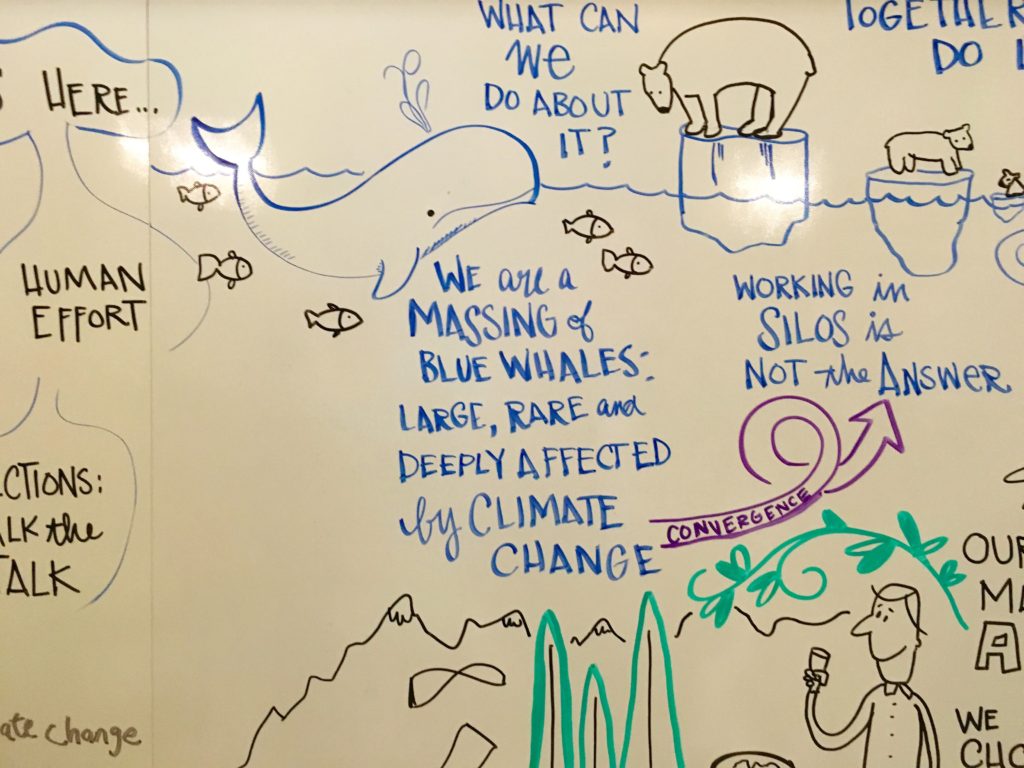 HERE...
HUMAN
EFFORT
the
TALK
change
WHAT CAN
WE
DO ABOUT
IT?
WE are a
MASSING of
BLUE WHALES:
LARGE, RARE and
DEEPLY AFFECTED
by CLIMATE
CHANGE
TOGETHER
DO
WORKING in
SILOS is
NOT the ANSWER
CONVERGENCE
OUR
WE